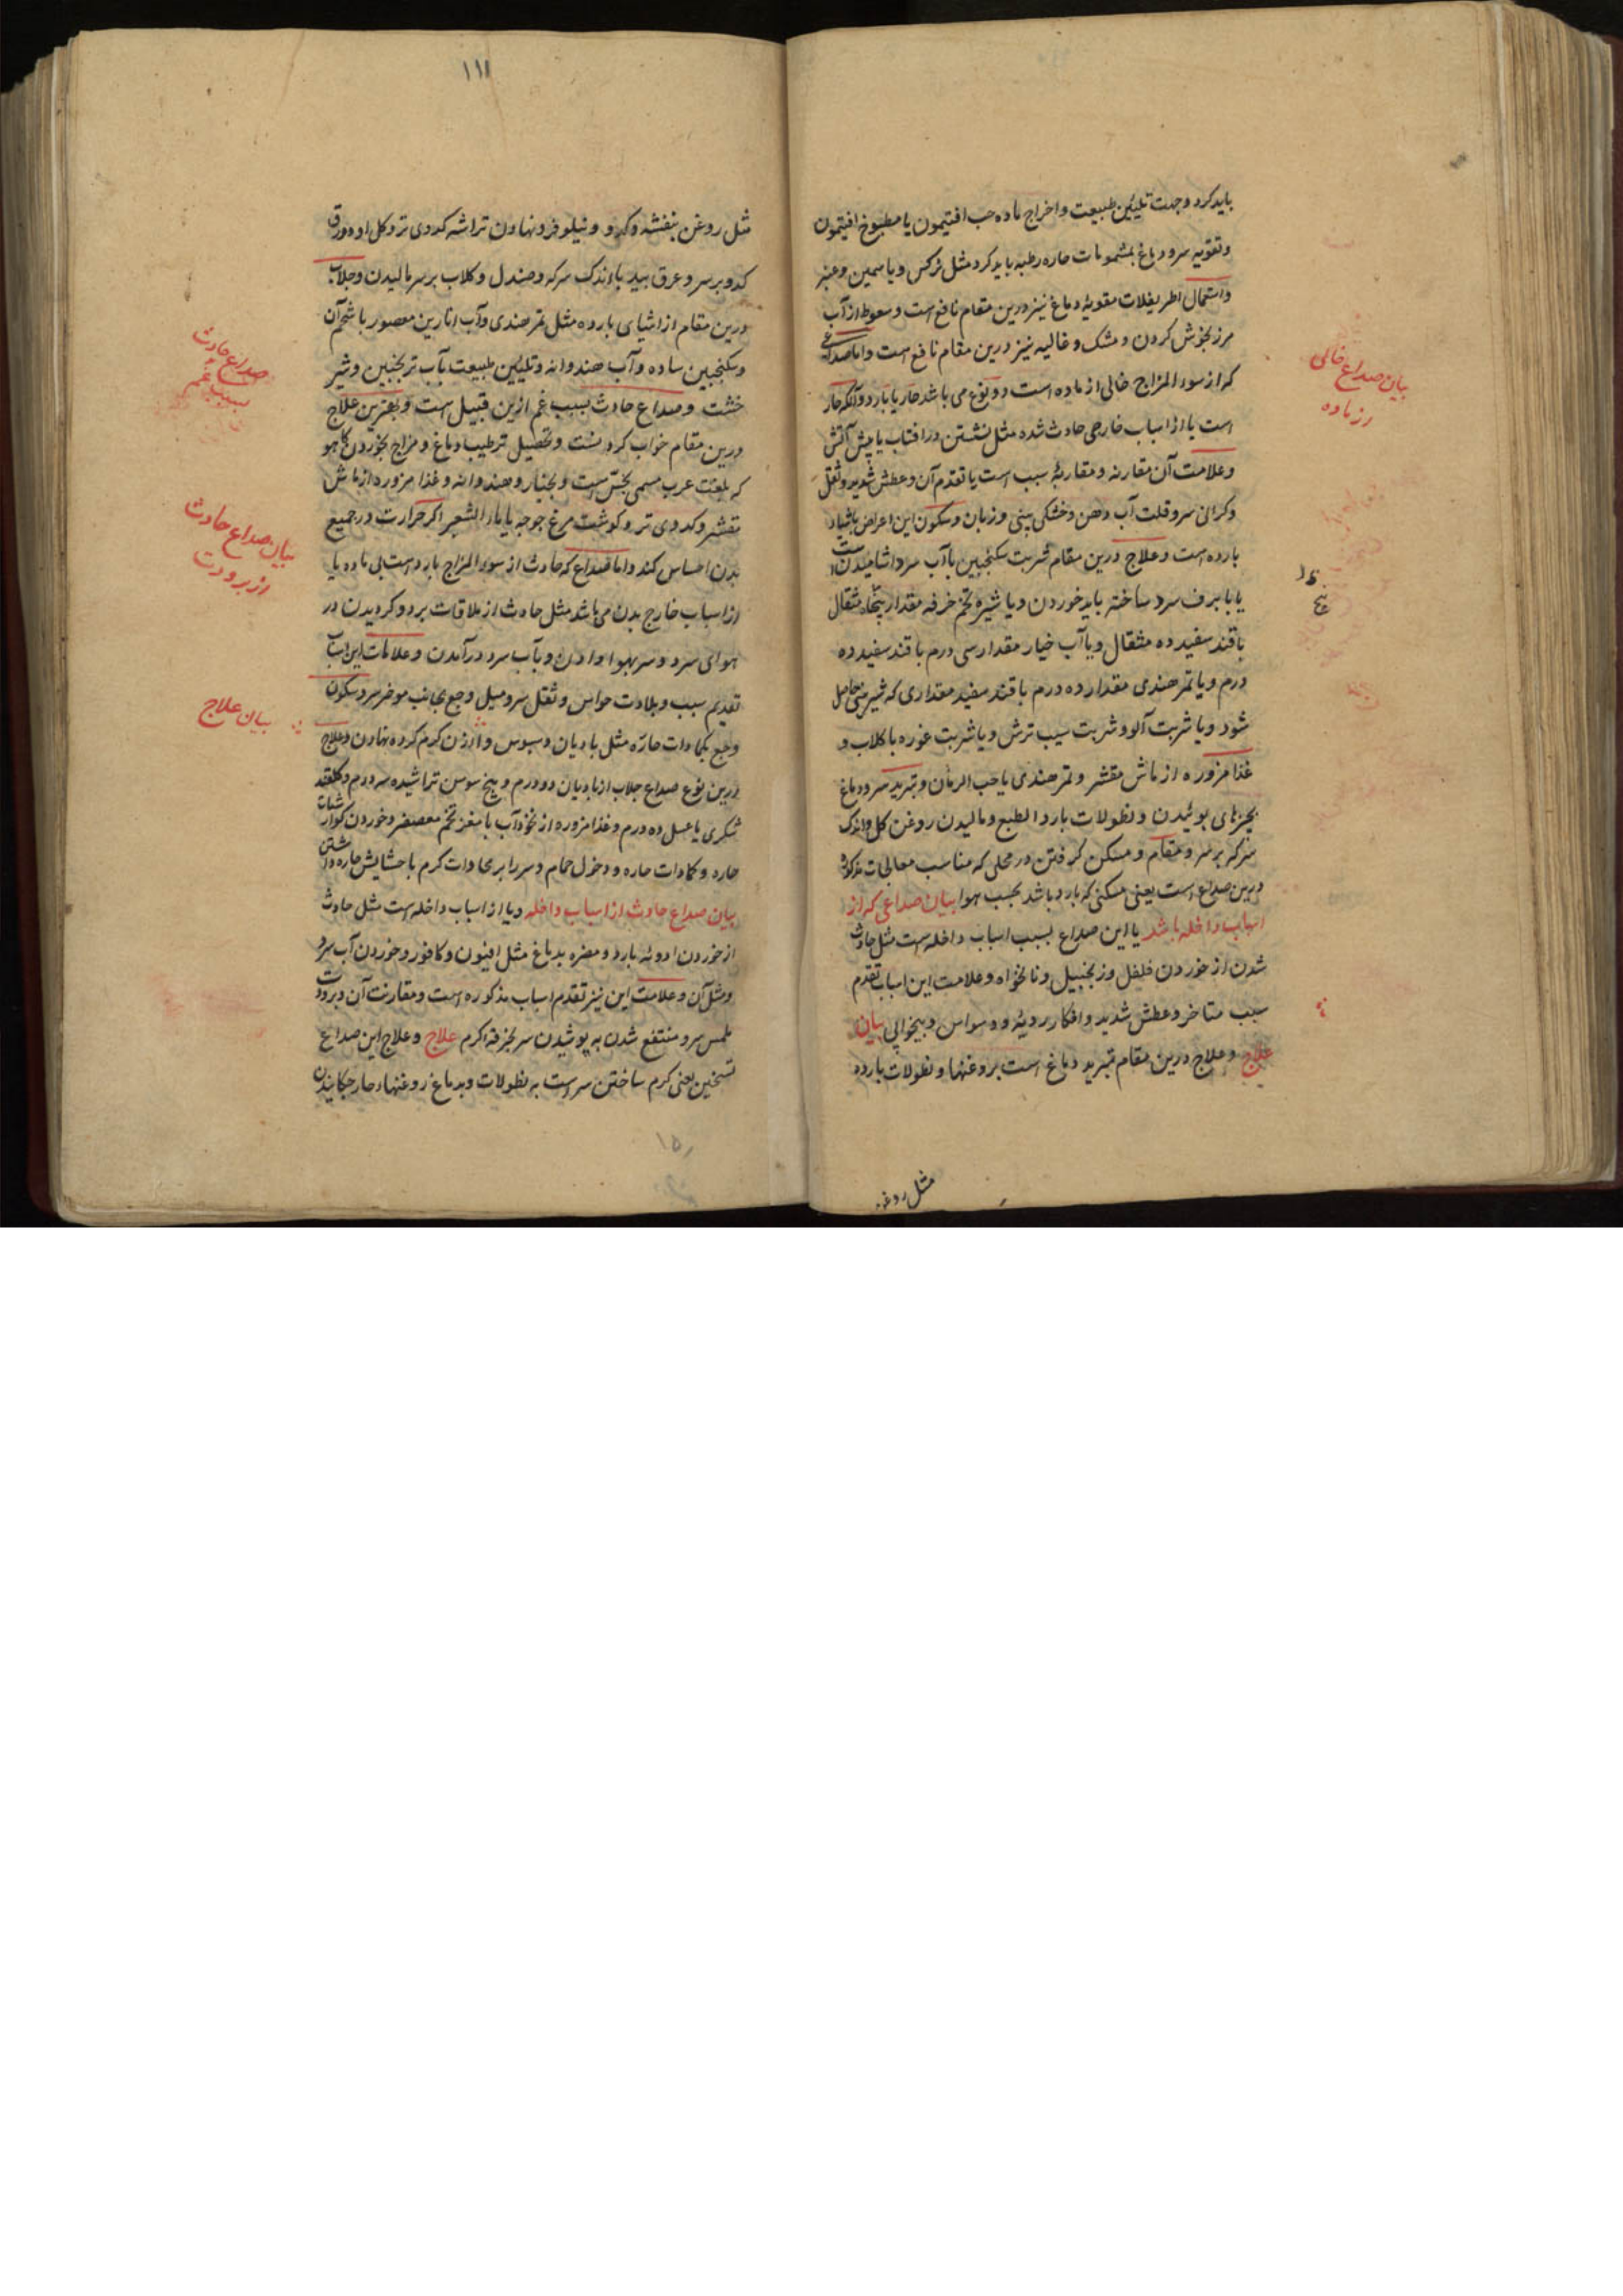 باید کرد و جهت تلیین طبیعت و اخراج ماده حب افتیمون یا مطبوخ افتیمون
و تقویه سر و دماغ بمشمومات حاره رطبه باید کرد مثل نرکس و یاسمین و عنبر
و استعمال اطریفلات مقویهٔ دماغ نیز درین مقام نافع است و سعوط از آب
مرزنجوش کردن و مشک و غالیه نیز درین مقام نافع است و اما صداعی
که از سوء المزاج خالی از ماده است دو نوع می باشد حار یا بارد و آنکه حار
است یا از اسباب خارجی حادث شده مثل نشستن در افتاب یا پیش آتش
و علامت آن مقارنه و مقاربهٔ سبب است یا تقدم آن و عطش شدید و ثقل
و کرانی سر و قلت آب دهن و خشکی بینی و زبان و سکون این اعراض باشیاء
بارده است و علاج درین مقام شربت سکنجبین باآب سرد اشامیدن است
یا با برف سرد ساخته باید خوردن و یا شیره تخم خرفه مقدار پنجاه مثقال
با قند سفید ده مثقال و یا آب خیار مقدار سی درم با قند سفید ده
درم و یا تمر هندی مقدار ده درم با قند سفید مقداری که شیرینی حاصل
شود و یا شربت آلو و شربت سیب ترش و یا شربت غوره با کلاب و
غذا مزوره از ماش مقشر و تمر هندی یا حب الرمان و تبرید سر و دماغ
بچیزهای بوئیدن و نطولات بارد الطبع و مالیدن روغن کل و اندک
سرکه بر سر و مقام و مسکن کرفتن در محلی که مناسب معالجات مذکوره
درین صداع است یعنی مسکنی که بارد باشد بحسب هوا بیان صداعی که از
اسباب داخله باشد یا این صداع بسبب اسباب داخله است مثل حادث
شدن از خوردن فلفل و زنجبیل و نانخواه و علامت این اسباب تقدم
سبب متاخر و عطش شدید و افکار ردیه و وسواس و بیخوابی بیان
علاج و علاج درین مقام تبرید دماغ است بروغنها و نطولات بارده
مثل روغن
بیان صداع خالی
از ماده
۱۱۱
مثل روغن بنفشه و کدو و نیلوفر و نهادن تراشه کدوی تر و کل او و ورق
کدو بر سر و عرق بید با اندک سرکه و صندل و کلاب بر سر مالیدن و جلاب
درین مقام از اشیای بارده مثل تمر هندی و آب انارین معصور با شحم آن
و سکنجبین ساده و آب هندوانه و تلیین طبیعت بآب ترنجبین و شیر
خشت و صداع حادث بسبب غم ازین قبیل است و بهترین علاج
درین مقام خواب کردنست و تحصیل ترطیب دماغ و مزاج بخوردن کاهو
که بلغت عرب مسمی بخس است و بخیار و هندوانه و غذا مزوره از ماش
مقشر و کدوی تر و کوشت مرغ جوجه یا بماء الشعیر اکر حرارت در جمیع
بدن احساس کند و اما صداع که حادث از سوء المزاج بارد است بی ماده یا
از اسباب خارج بدن می باشد مثل حادث از ملاقات برد و کردیدن در
هوای سرد و سر بهوا دادن و بآب سرد درآمدن و علامات این اسباب
تقدیم سبب و بلادت حواس و ثقل سر و میل وجع بجانب موخر سر و سکون
وجع بکمادات حاره مثل بادیان و سبوس و ارزن کرم کرده نهادن و علاج
درین نوع صداع جلاب از بادیان دو درم و بیخ سوس تراشیده سه درم و کلقند
شکری یا عسل ده درم و غذا مزوره از نخودآب با مغز تخم معصفر و خوردن کوارشات
حاره و کمادات حاره و دخول حمام و سر را بر بخارات کرم با حشایش حاره داشتن
بیان صداع حادث از اسباب داخله و یا از اسباب داخله است مثل حادث
از خوردن ادویه بارده و مضره بدماغ مثل افیون و کافور و خوردن آب سرد
و مثل آن و علامت این نیز تقدم اسباب مذکوره است و مقارنت آن و برودت
ملمس سر و منتفع شدن به پوشیدن سر بخرقهٔ کرم علاج و علاج این صداع
تسخین یعنی کرم ساختن سر است به نطولات و بدماغ روغنهاء حار چکانیدن
صداع حادث
بسبب غم
بیان صداع حادث
از برودت
بیان علاج
۱۵